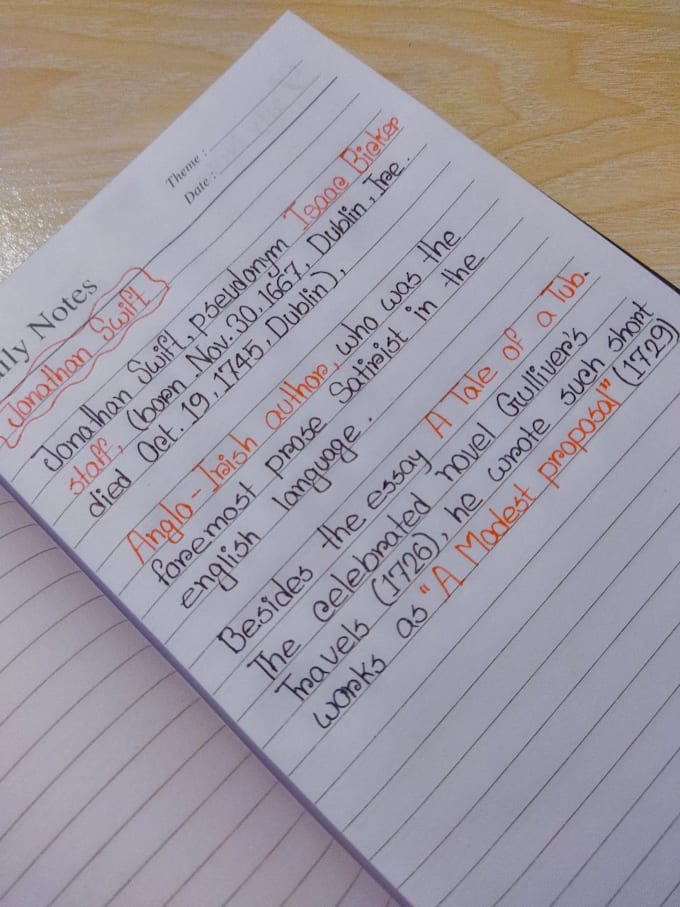 Theme :
Date :
ily Notes
Jonathan Swift
Jonathan Swift, pseudonym Isaac Bicker
staff, (born Nov. 30, 1667, Dublin, Ire.
died Oct. 19, 1745, Dublin),
Anglo-Irish author, who was the
foremost prose Satirist in the
english language.
Besides the essay A Tale of a Tub.
The celebrated novel Gulliver's
Travels (1726), he wrote such short
works as "A Modest proposal" (1729)